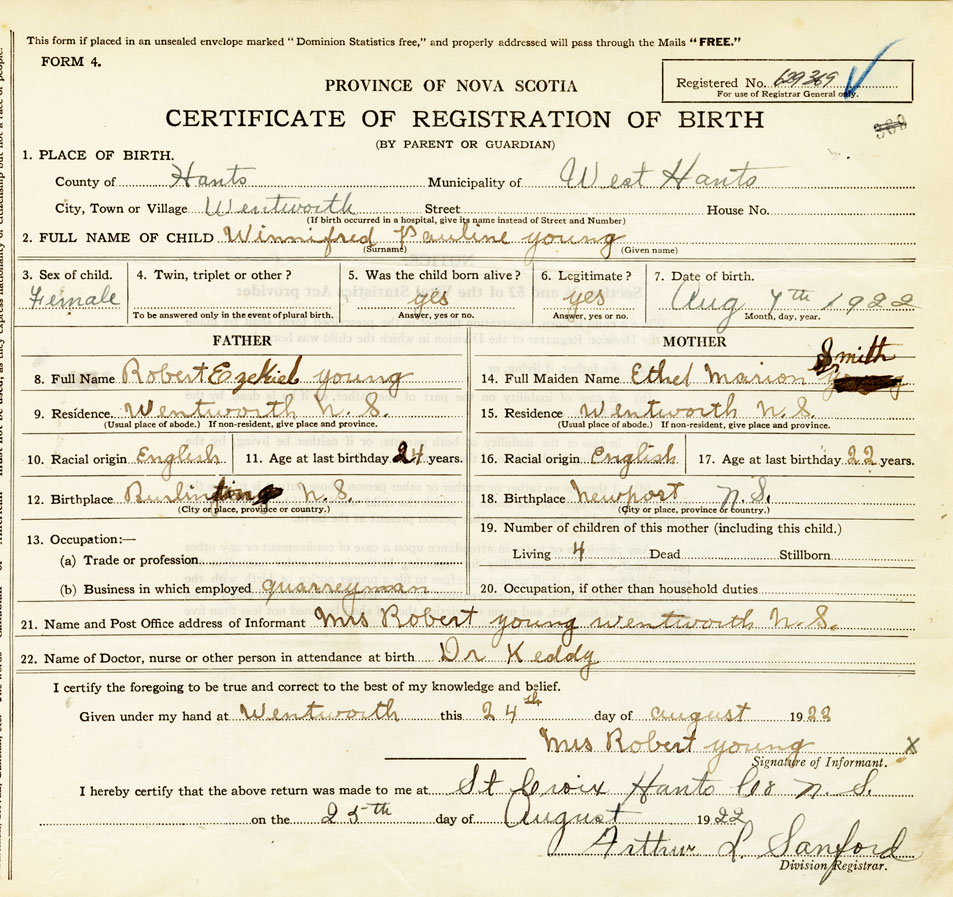 This form if placed in an unsealed envelope marked "Dominion Statistics free," and properly addressed will pass through the Mails "FREE."
FORM 4.
Registered No. 629369
For use of Registrar General only.
PROVINCE OF NOVA SCOTIA
CERTIFICATE OF REGISTRATION OF BIRTH
(BY PARENT OR GUARDIAN)
1. PLACE OF BIRTH.
County of Hants Municipality of West Hants
City, Town or Village Wentworth Street House No.
(If birth occurred in a hospital, give its name instead of Street and Number)
2. FULL NAME OF CHILD Winnifred Pauline young
(Surname) (Given name)
3. Sex of child. 4. Twin, triplet or other? 5. Was the child born alive? 6. Legitimate? 7. Date of birth.
Female yes yes Aug 7th 1922
To be answered only in the event of plural birth. Answer, yes or no. Answer, yes or no. Month, day, year.
FATHER MOTHER
8. Full Name Robert Ezekiel young 14. Full Maiden Name Ethel Marion Smith
9. Residence. Wentworth N.S. 15. Residence Wentworth N.S.
(Usual place of abode.) If non-resident, give place and province. (Usual place of abode.) If non-resident, give place and province.
10. Racial origin English 11. Age at last birthday 24 years. 16. Racial origin English 17. Age at last birthday 22 years.
12. Birthplace N.S. 18. Birthplace Newport N.S.
(City or place, province or country.) (City or place, province or country.)
13. Occupation:— 19. Number of children of this mother (including this child.)
(a) Trade or profession Living 4 Dead Stillborn
(b) Business in which employed quarreyman 20. Occupation, if other than household duties
21. Name and Post Office address of Informant Mrs Robert young wentworth N.S.
22. Name of Doctor, nurse or other person in attendance at birth Dr Keddy
I certify the foregoing to be true and correct to the best of my knowledge and belief.
Given under my hand at Wentworth this 24th day of august 1922
Mrs Robert young X
Signature of Informant.
I hereby certify that the above return was made to me at St Croix Hants Co N.S.
on the 25th day of August 1922
Arthur L Sanford
Division Registrar.